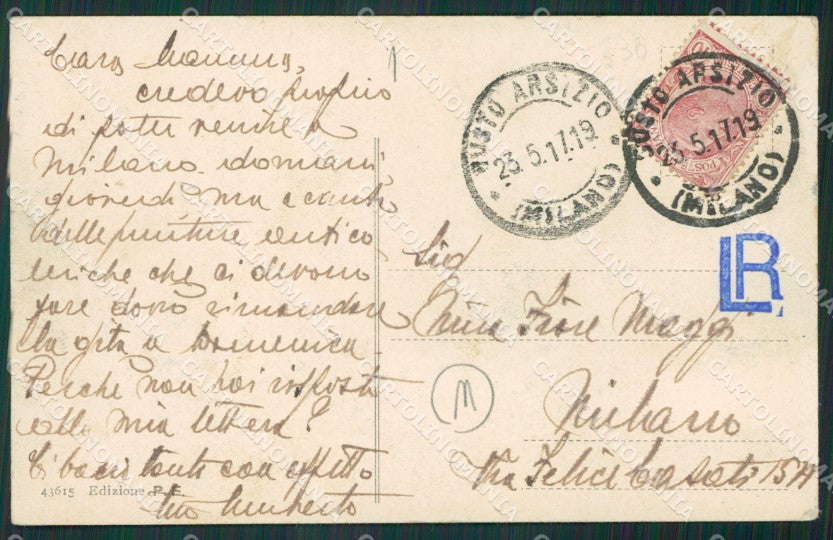 Cara Mamma,
credevo proprio
di poter venire a
Milano domani
giovedì, ma a causa
delle punture antico
leriche che ci devono
fare dovrò rimandare
la gita a domenica.
Perchè non hai risposto
alla mia lettera?
Ti bacio tanto con affetto
tuo Umberto
43615 Edizione P. E.
BUSTO ARSIZIO
23.5.17.19
(MILANO)
BUSTO ARSIZIO
23.5.17.19
(MILANO)
LR
Sig
Fiore Maggi
M
Milano
Via Felice Casati 15A